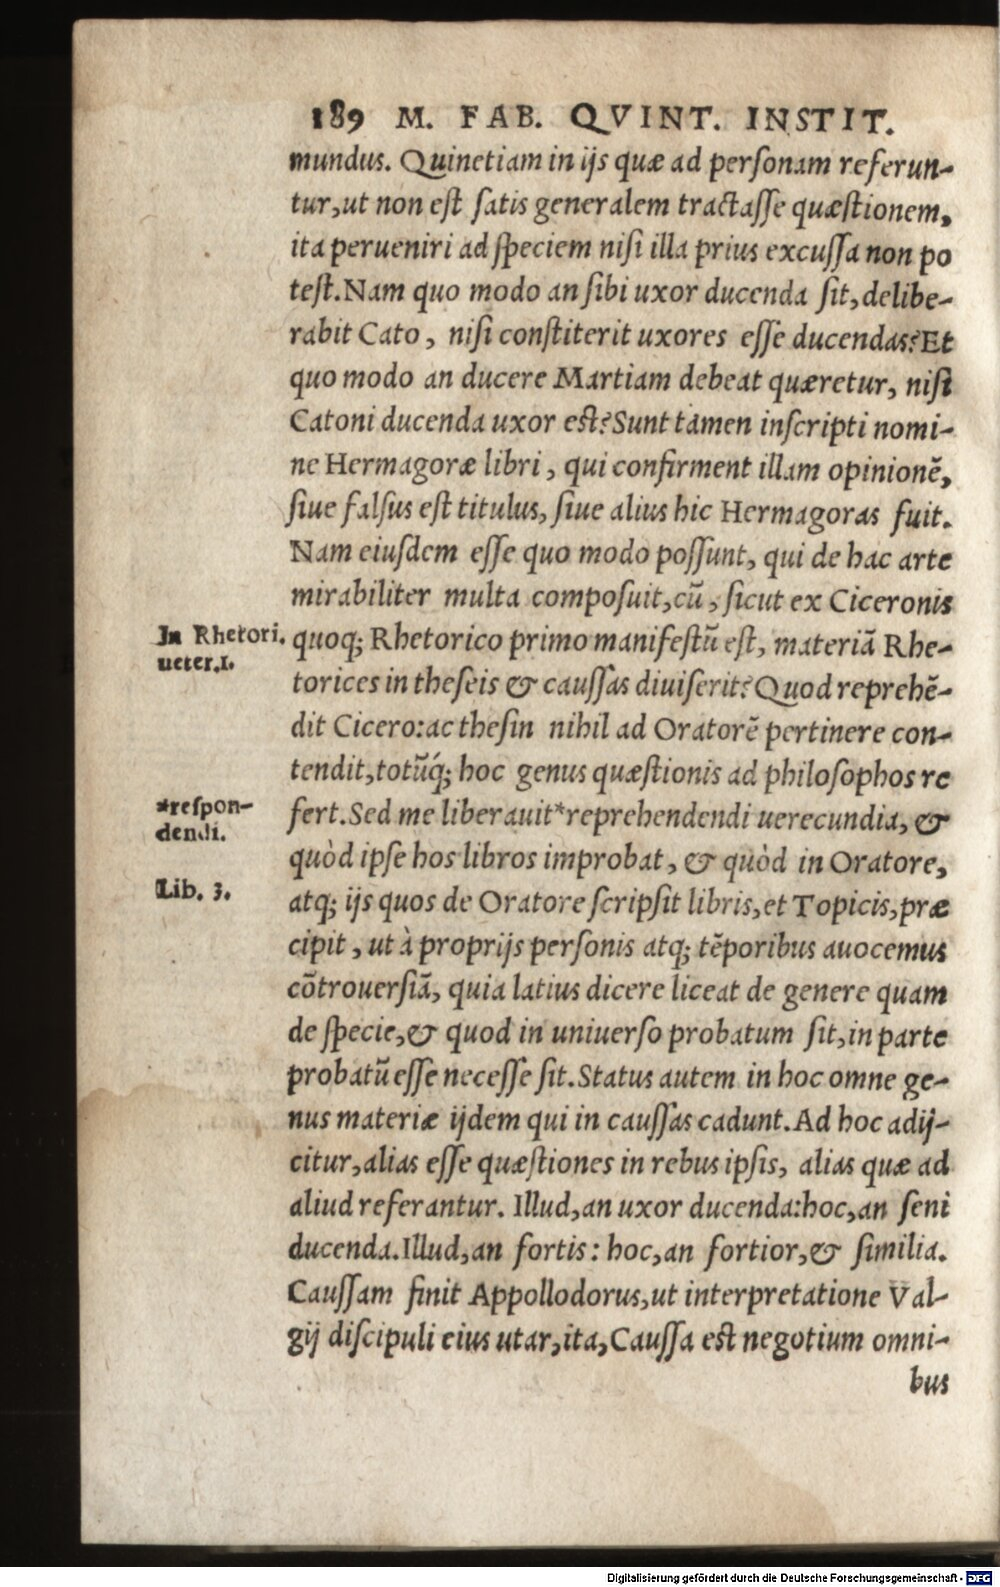 189 M. FAB. QVINT. INSTIT.
mundus. Quinetiam in ijs quæ ad perſonam referun-
tur, ut non eſt ſatis generalem tractaſſe quæſtionem,
ita perueniri ad ſpeciem niſi illa prius excuſſa non po
teſt. Nam quo modo an ſibi uxor ducenda ſit, delibe-
rabit Cato, niſi conſtiterit uxores eſſe ducendas? Et
quo modo an ducere Martiam debeat quæretur, niſi
Catoni ducenda uxor eſt? Sunt tamen inſcripti nomi-
ne Hermagoræ libri, qui confirment illam opinionẽ,
ſiue falſus eſt titulus, ſiue alius hic Hermagoras fuit.
Nam eiuſdem eſſe quo modo poſſunt, qui de hac arte
mirabiliter multa compoſuit, cũ, ſicut ex Ciceronis
In Rhetori. quoq; Rhetorico primo manifeſtũ eſt, materiã Rhe-
ueter.1.
torices in theſeis & cauſſas diuiſerit? Quod reprehẽ-
dit Cicero: ac theſin nihil ad Oratorẽ pertinere con-
tendit, totũq́; hoc genus quæſtionis ad philoſophos re
*reſpon-
dendi.
fert. Sed me liberauit*reprehendendi uerecundia, &
quòd ipſe hos libros improbat, & quòd in Oratore,
Lib. 3.
atq; ijs quos de Oratore ſcripſit libris, et Topicis, præ
cipit, ut à proprijs perſonis atq; tẽporibus auocemus
cõtrouerſiã, quia latius dicere liceat de genere quam
de ſpecie, & quod in uniuerſo probatum ſit, in parte
probatũ eſſe neceſſe ſit. Status autem in hoc omne ge-
nus materiæ ijdem qui in cauſſas cadunt. Ad hoc adij-
citur, alias eſſe quæſtiones in rebus ipſis, alias quæ ad
aliud referantur. Illud, an uxor ducenda: hoc, an ſeni
ducenda. Illud, an fortis: hoc, an fortior, & ſimilia.
Cauſſam finit Appollodorus, ut interpretatione Val-
gij diſcipuli eius utar, ita, Cauſſa eſt negotium omni-
bus
Digitalisierung gefördert durch die Deutsche Forschungsgemeinschaft - DFG